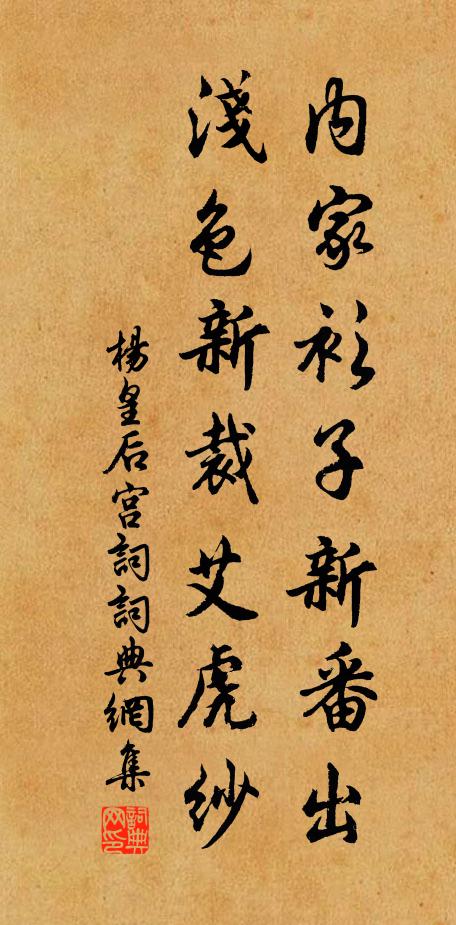 内家衫子新番出
淺色新裁艾虎紗
楊皇后宮詞詞典網集
詞典网印